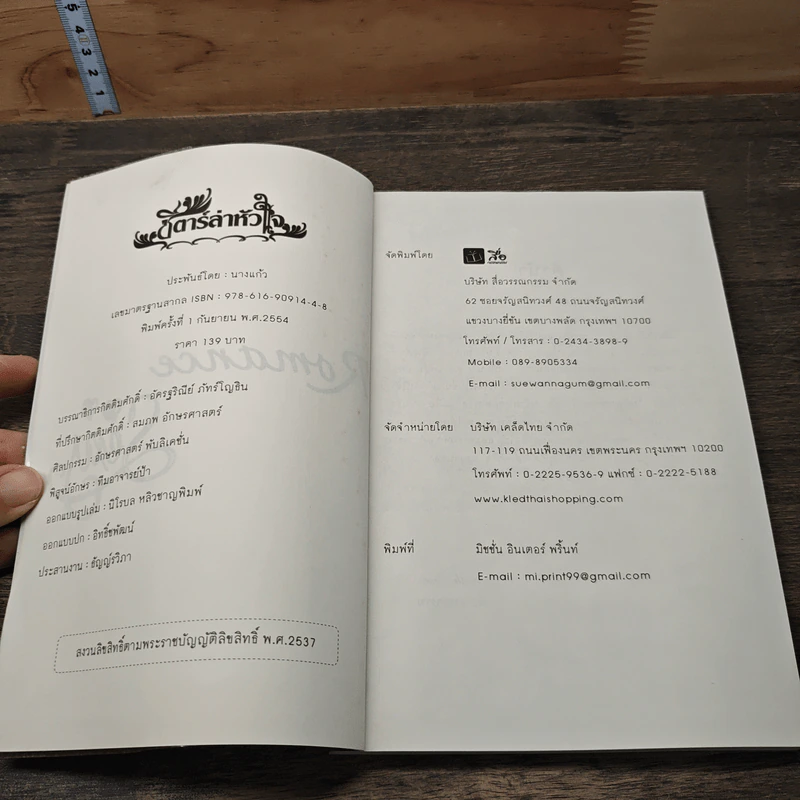 5 4 3 2 1
ดีดาร์ล่าหัวใจ
ประพันธ์โดย : นางแก้ว
เลขมาตรฐานสากล ISBN : 978-616-90914-4-8
พิมพ์ครั้งที่ 1 กันยายน พ.ศ.2554
ราคา 139 บาท
Romance
บรรณาธิการกิตติมศักดิ์ : อัครฐริณีย์ ภัทร์โญธิน
ที่ปรึกษากิตติมศักดิ์ : สมภพ อักษรศาสตร์
ศิลปกรรม : อักษรศาสตร์ พับลิเคชั่น
พิสูจน์อักษร : ทีมอาจารย์ป้า
ออกแบบรูปเล่ม : นิโรบล หลิวชาญพิมพ์
ออกแบบปก : อิทธิ์ชพัฒน์
ประสานงาน : ธัญญ์รวิภา
สงวนลิขสิทธิ์ตามพระราชบัญญัติลิขสิทธิ์ พ.ศ.2537
จัดพิมพ์โดย สื่อ
บริษัท สื่อวรรณกรรม จำกัด
62 ซอยจรัญสนิทวงศ์ 48 ถนนจรัญสนิทวงศ์
แขวงบางยี่ขัน เขตบางพลัด กรุงเทพฯ 10700
โทรศัพท์ / โทรสาร : 0-2434-3898-9
Mobile : 089-8905334
E-mail : suewannagum@gmail.com
จัดจำหน่ายโดย บริษัท เคล็ดไทย จำกัด
117-119 ถนนเฟื่องนคร เขตพระนคร กรุงเทพฯ 10200
โทรศัพท์ : 0-2225-9536-9 แฟกซ์ : 0-2222-5188
www.kledthaishopping.com
พิมพ์ที่ มิชชั่น อินเตอร์ พริ้นท์
E-mail : mi.print99@gmail.com